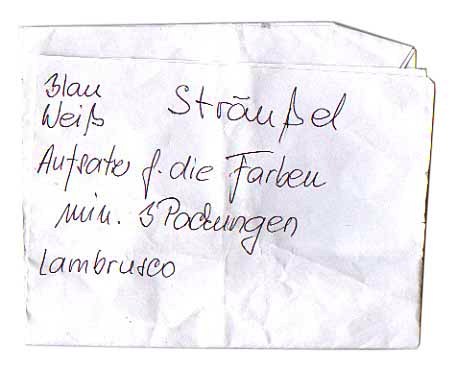 Blau
Weiß
Sträußel
Aufsatz f. die Farben
min. 3 Packungen
Lambrusco